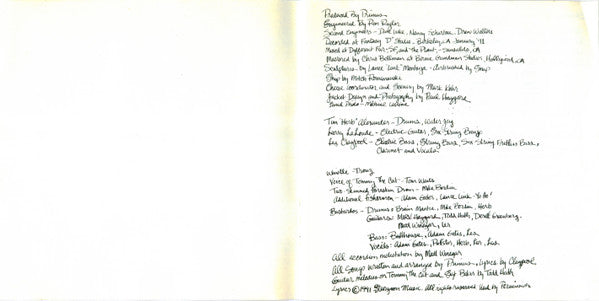 Produced By Primus
Engineered By Ron Rigler
Second Engineers - Dave Luke, Nancy Scharlau, Drew Waters
Recorded at Fantasy "D" Studio - Berkeley, CA - January '91
Mixed at Different Fur - SF, and The Plant, - Sausalito, CA
Mastered by Chris Bellman at Bernie Grundman Studios, Hollywood, CA
Sculptures - by Lance "Link" Montoya - by Snap
Snap by Mitch
Cheese and by Mark Kohr
Jacket Design and Photography by Paul Haggard
Band Photo -
Tim "Herb" Alexander - Drums, Water Jug
Larry LaLonde - Electric Guitar, Six String Banjo
Les Claypool - Electric Bass, String Bass, Six String Fretless Bass,
Clarinet and Vocals
Whistle - Trouz
Voice of Tommy The Cat - Tom Waits
Two Skinned Drum - Mike Bordin
Additional Fishermen - Adam Gates, Lance Link - Yo Ho!
Bastardos - Drums & Brain Mantia, Mike Bordin, Herb
Guitars - Mark Haggard, Todd Huth, Derek Greenberg,
Matt Winegar, Ler
Bass: Bullhouse, Adam Gates, Les
Vocals: Adam Gates, Herb, Ler, Les
All accordion by Matt Winegar
All Songs written and arranged by Primus, Lyrics by Claypool
Guitar melodies on Tommy the Cat and Sgt. Baker by Todd Huth
Lyrics © 1991 Sturgeon Music All rights reserved Used by Permission